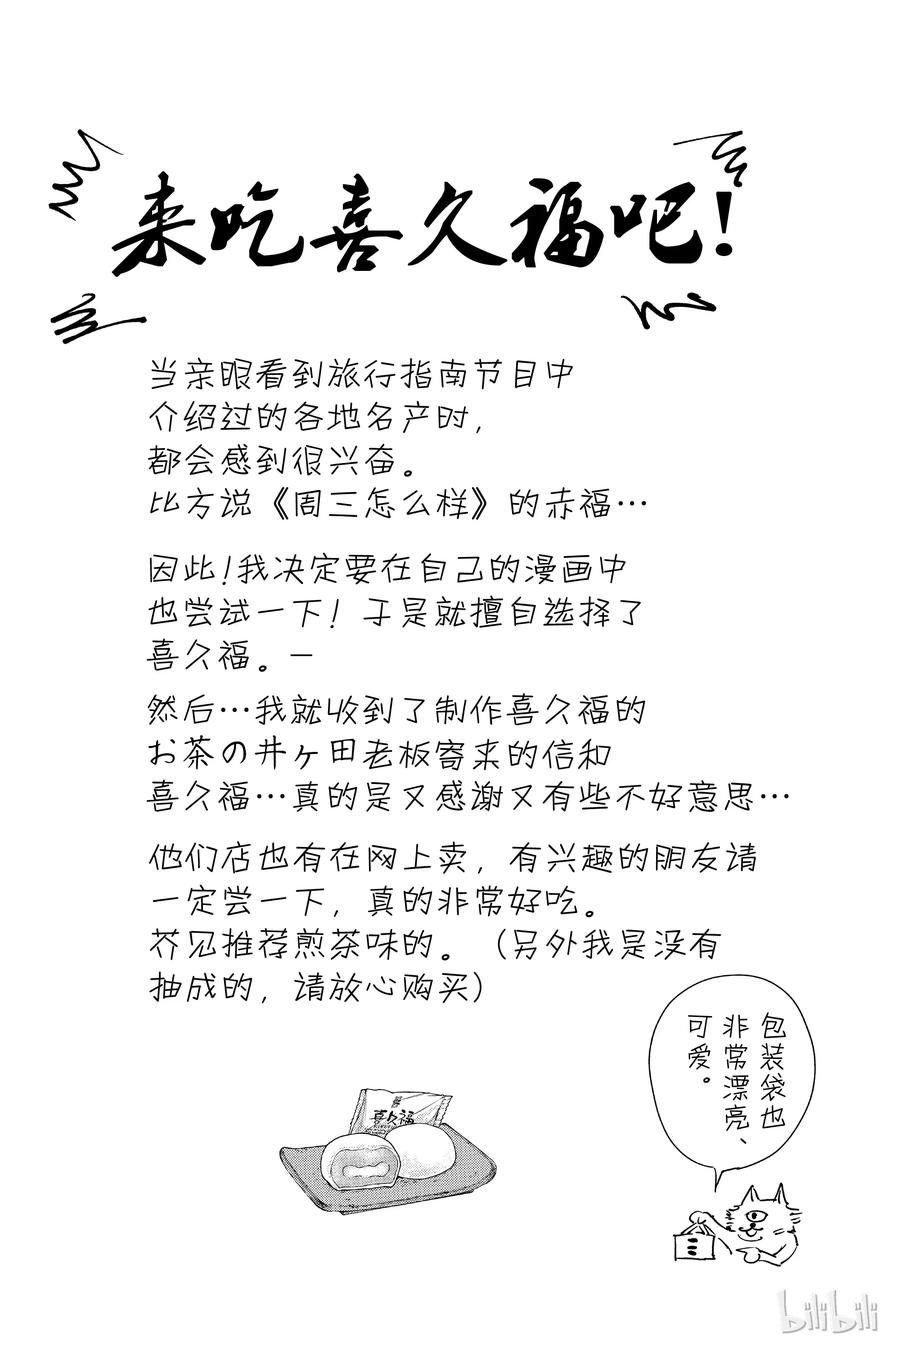 来吃喜久福吧!
当亲眼看到旅行指南节目中
介绍过的各地名产时，
都会感到很兴奋。
比方说《周三怎么样》的赤福…
因此!我决定要在自己的漫画中
也尝试一下! 于是就擅自选择了
喜久福。—
然后…我就收到了制作喜久福的
お茶の井ヶ田老板寄来的信和
喜久福…真的是又感谢又有些不好意思…
他们店也有在网上卖，有兴趣的朋友请
一定尝一下，真的非常好吃。
芥见推荐煎茶味的。（另外我是没有
抽成的，请放心购买）
包装袋也
非常漂亮、
可爱。
喜久福
bilibili